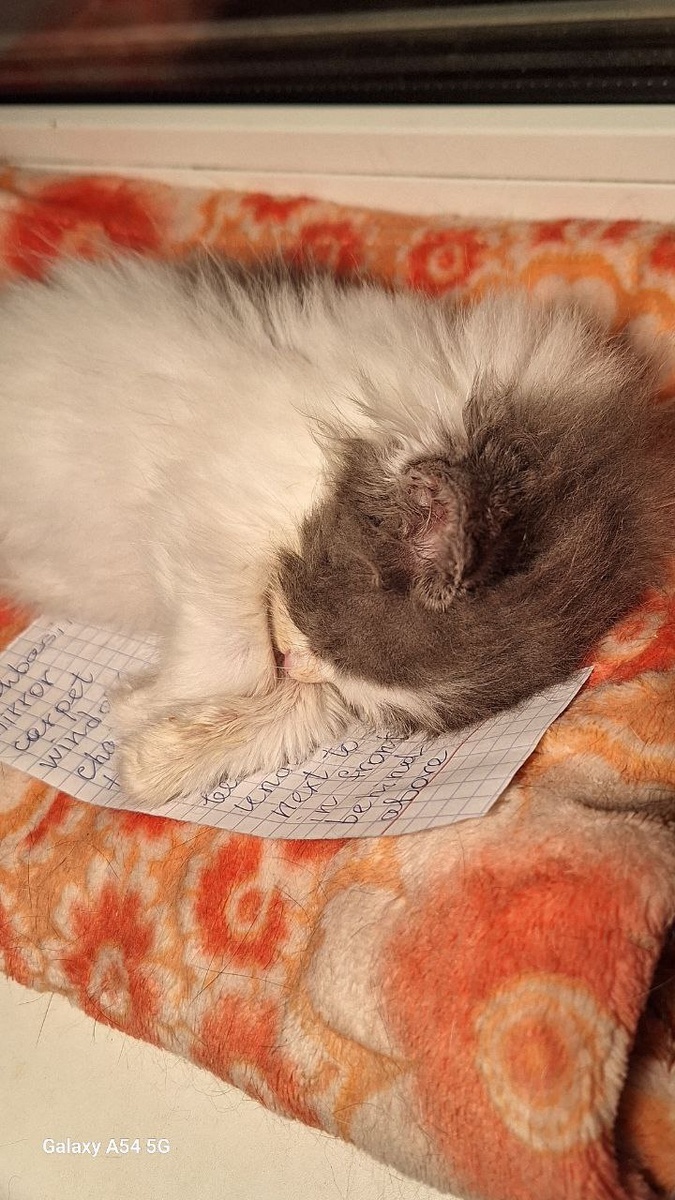 mirror
carpet
window
cha
be
und
next to
in front
behind
above
Galaxy A54 5G